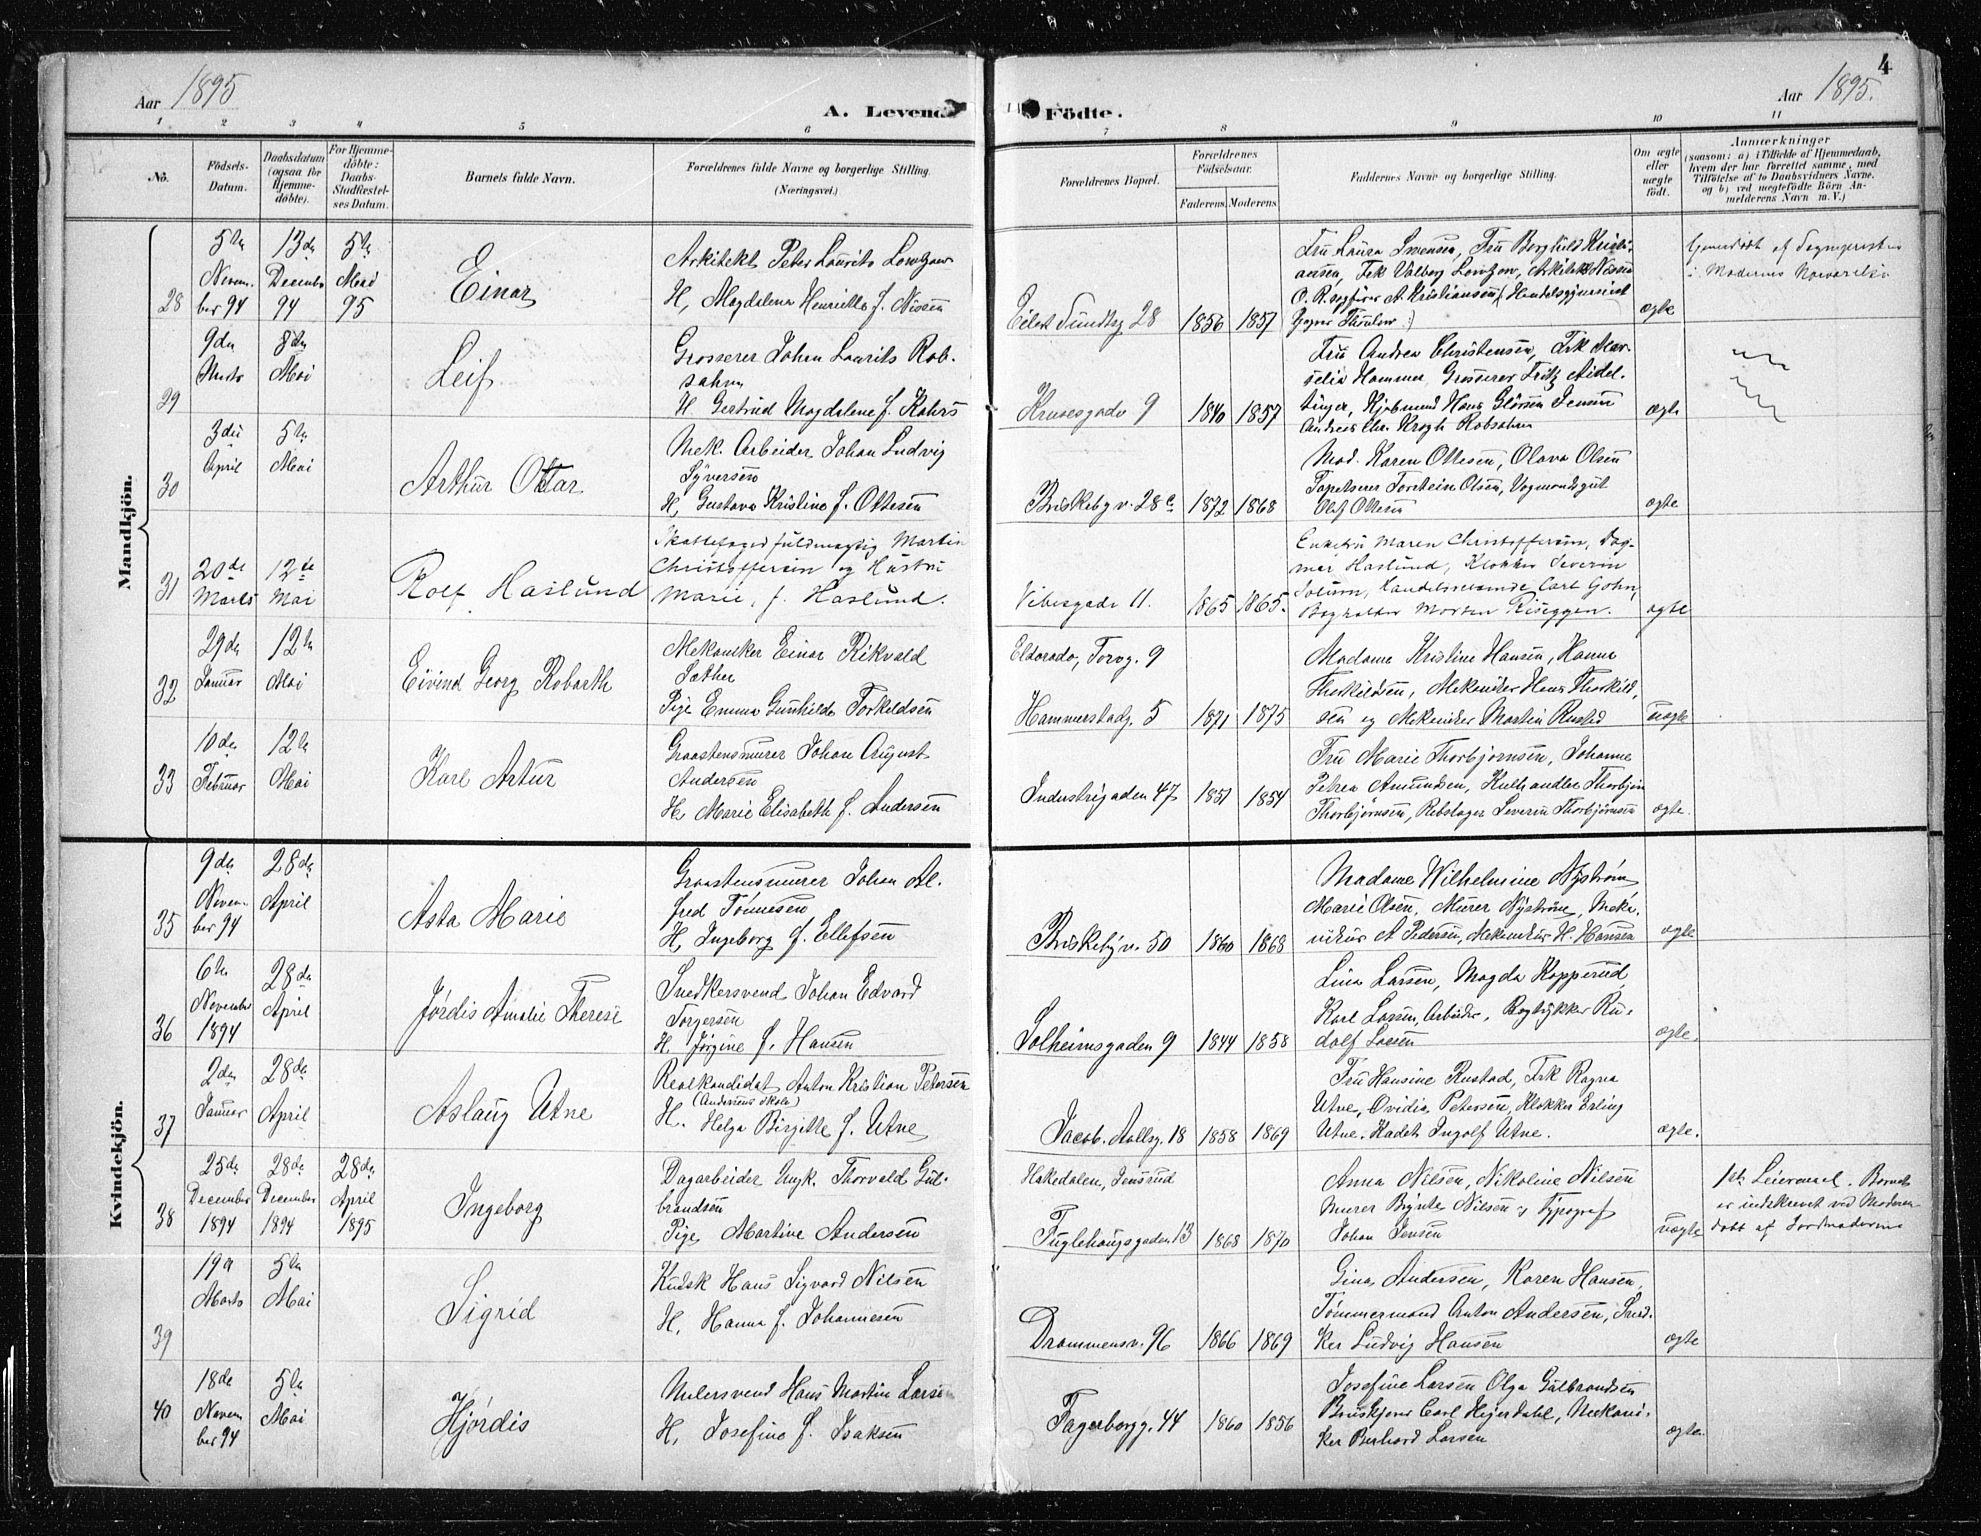 4
Aar 1895
A. Levende Födte.
Aar 1895.
1 2 3 4 5 6 7 8 9 10 11
No.
Födsels-
Datum.
Daabsdatum
(ogsaa for
Hjemme-
döbte).
For Hjemme-
döbte:
Daabs-
Stadfæstel-
ses Datum.
Barnets fulde Navn.
Forældrenes fulde Navne og borgerlige Stilling.
(Næringsvei.)
Forældrenes Bopæl.
Forældrenes
Födselsaar.
Faderens. Moderens.
Faddernes Navne og borgerlige Stilling.
Om ægte
eller
uægte
födt.
Anmærkninger
(saasom: a) i Tilfælde af Hjemmedaab,
hvem der har forrettet samme, med
Tilföielse af to Daabsvidners Navne,
og b) ved uegtefödte Börn An-
melderens Navn m. V.)
Mandkjön.
28
5te
Novem-
ber 94
13de
December
94
5te
Mai
95
Einar
Arkitekt Peter Laurits Lowzow
H, Magdalena Henriette f. Nissen
Eilert Sundtsg 28
1856 1857
Fru Laura Svensen, Fru Borghild Kristi-
ansen, Frk Valborg Lowzow, Arkitekt Nissen
O. R. sagfører A. Kristiansen, Handelsgymnasiast
ægte
29
9de
Marts
8de
Mai
Leif
Grosserer Johan Laurits Rob-
sahm
H Gertrud Magdalene f. Kahrs
Krusesgade 9
1840 1857
Fru Andrea Christensen, Frk Mar-
selie Hammer, Grosserer Fritz
Andreas Chr. Krogh Robsahm
ægte
30
3die
April
5te
Mai
Arthur Ottar
Mek. Arbeider Johan Ludvig
Syversen
H, Gustava Kristine f. Ottesen
Briskebyv. 28c
1872 1868
Mad. Karen Ottesen, Olava Olsen
Tapetserer Torstein Olsen, Vognmandsgut
Olaf Ottesen
ægte
31
20de
Marts
12te
Mai
Rolf Haslund
Skattefogedfuldmægtig Martin
Christoffersen og Hustru
Marie, f. Haslund.
Vibesgade 11.
1865 1865.
Enkefru Maren Christoffersen, Dag-
mar Haslund, Klokker Severin
Solum, Handelsreisende Carl Gohn,
Bogholder Morten Riseggen.
ægte
32
29de
Januar
12te
Mai
Eivind Georg Robarth
Mekaniker Einar Rikvald
Sæther
Pige Emma Gunhilde Torkeldsen
Eldorado, Torvg. 9
Hammerstadg. 5
1871 1875
Madame Kristine Hansen, Hanna
Thorkildsen, Mekaniker Hans Thorkild-
sen og Mekaniker Martin Rustad
uægte
33
10de
Februar
12te
Mai
Karl Artur
Graastensmurer Johan August
Andersen
H, Marie Elisabeth f. Andersen
Industrigaden 47
1851 1854
Fru Marie Thorbjørnsen, Johanne
Petrea Amundsen, Kulhandler Thorbjørn
Thorbjørnsen, Rebslager Severin Thorbjørnsen
ægte.
Kvindekjön.
35
9de
Novem-
ber 94
28de
April
Asta Marie
Graastensmurer Johan Al-
fred Tønnesen
H, Ingeborg f. Ellefsen
Briskebyv. 50
1860 1868
Madame Wilhelmine Nystrøm
Marie Olsen, Murer Nystrøm, Meka-
nikus A Pedersen, Mekanikus H. Hansen
ægte
36
6te
November
1894
28de
April
Jørdis Amalie Therese
Snedkersvend Johan Edvard
Torgersen
H. Jørgine f. Hansen
Solheimsgaden 9
1844 1858
Lina Larsen, Magda Kopperud
Karl Larsen, Arbeider, Bogtrykker Ru-
dolf Larsen
ægte.
37
2den
Januar
28de
April
Aslaug Utne
Realkandidat Anton Kristian Petersen
(Anderssens skole)
H. Helga Birgitte f. Utne
Jacob Aallsg. 18
1858 1869
Fru Hansine Rustad, Frk Ragna
Utne, Ovidia Petersen, Klokker Erling
Utne. Kadet Ingolf Utne.
ægte.
38
25de
December
1894
28de
December
1894
28de
April
1895
Ingeborg
Dagarbeider Ungk. Thorvald Gul-
brandsen
Pige Martine Andersen
Hakedalen, Jensrud
Fuglehaugsgaden 13
1868 1870
Anna Nilsen, Nikoline Nilsen
Murer Bernt Nilsen og Typograf
Johan Jensen
uægte
1ste Leiermaal. Barnet
er indskrevet ved Moderen
døbt af Jordmoderen
39
19de
Marts
5te
Mai
Sigrid
Kudsk Hans Sigvard Nilsen
H, Hanna f. Johannesen
Drammensv. 96
1866 1869
Gina Andersen, Karen Hansen,
Tømmermand Anton Andersen, Sned-
ker Ludvig Hansen
ægte
40
18de
Novem
ber 94
5te
Mai
Hjørdis
Malersvend Hans Martin Larsen
H, Josefine f. Isaksen
Fagerborgg. 44
1860 1856
Josefine Larsen Olga Gulbrandsen
Bruskjører Carl Hejerdahl, Mekani-
ker Berhard Larsen
ægte.